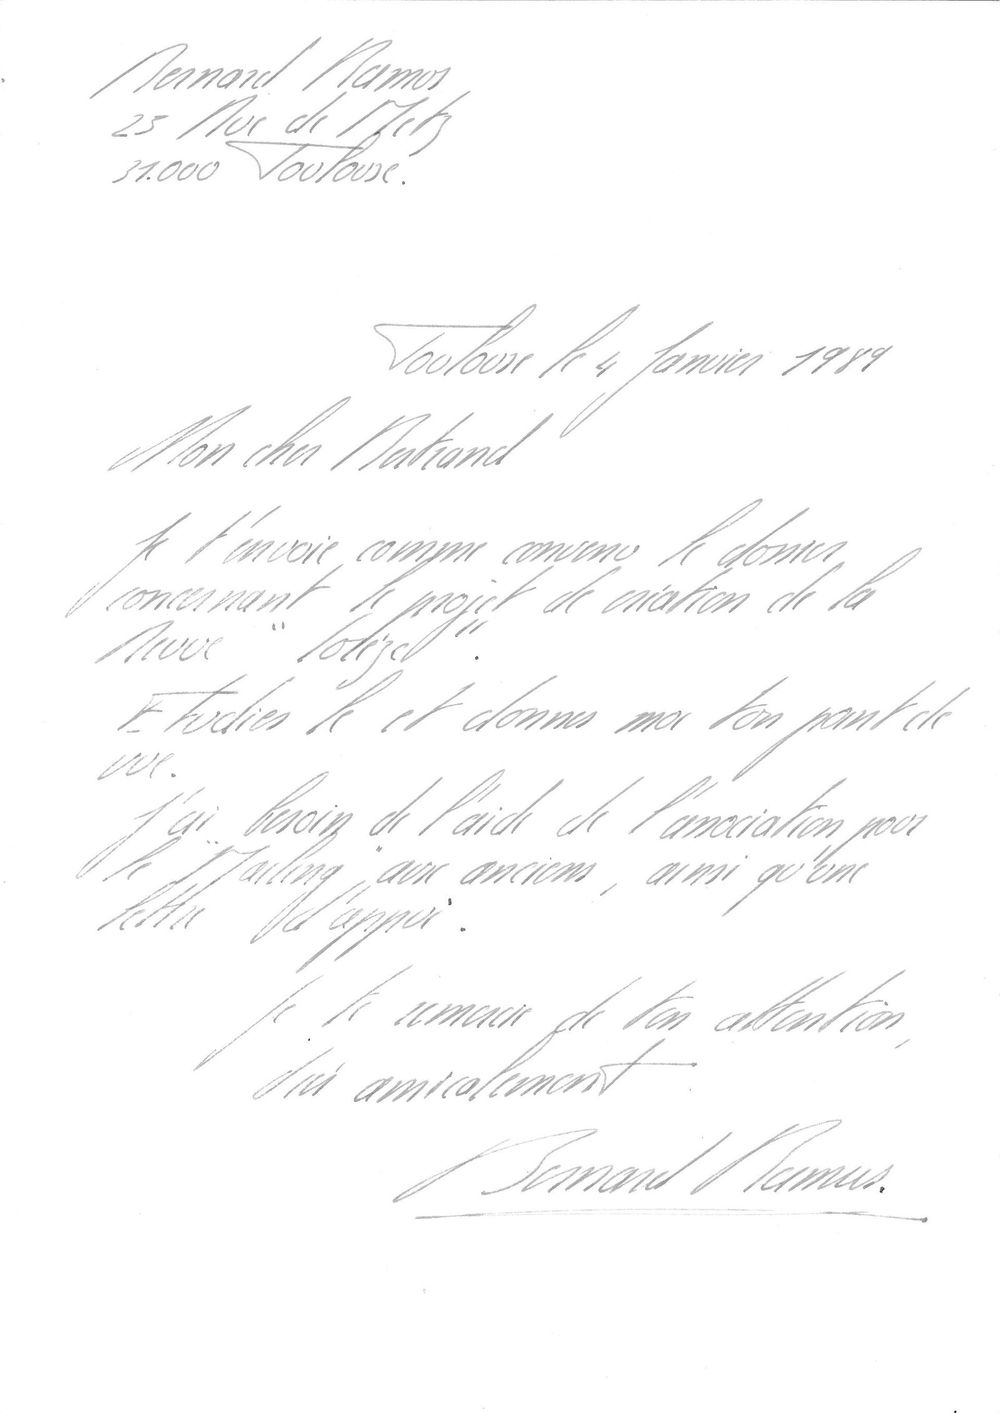 Bernard Ramos
23 Rue de Metz
31.000 Toulouse.
Toulouse le 4 Janvier 1989
Mon cher Bertrand
Je t'envoie comme convenu le dossier
concernant le projet de création de la
Revue " ".
Etudies le et donnes moi ton point de
vue.
J'ai besoin de l'aide de l'association pour
le "Mailing" aux anciens, ainsi qu'une
lettre d'appui.
Je te remercie de ton attention,
amicalement
Bernard Ramos.